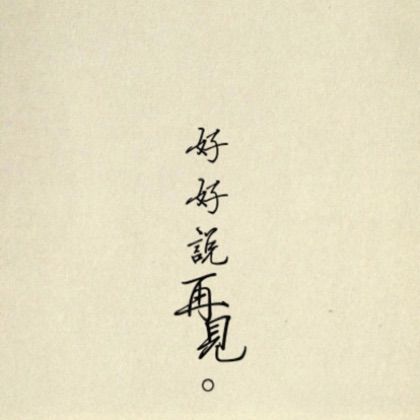 好好說再見。